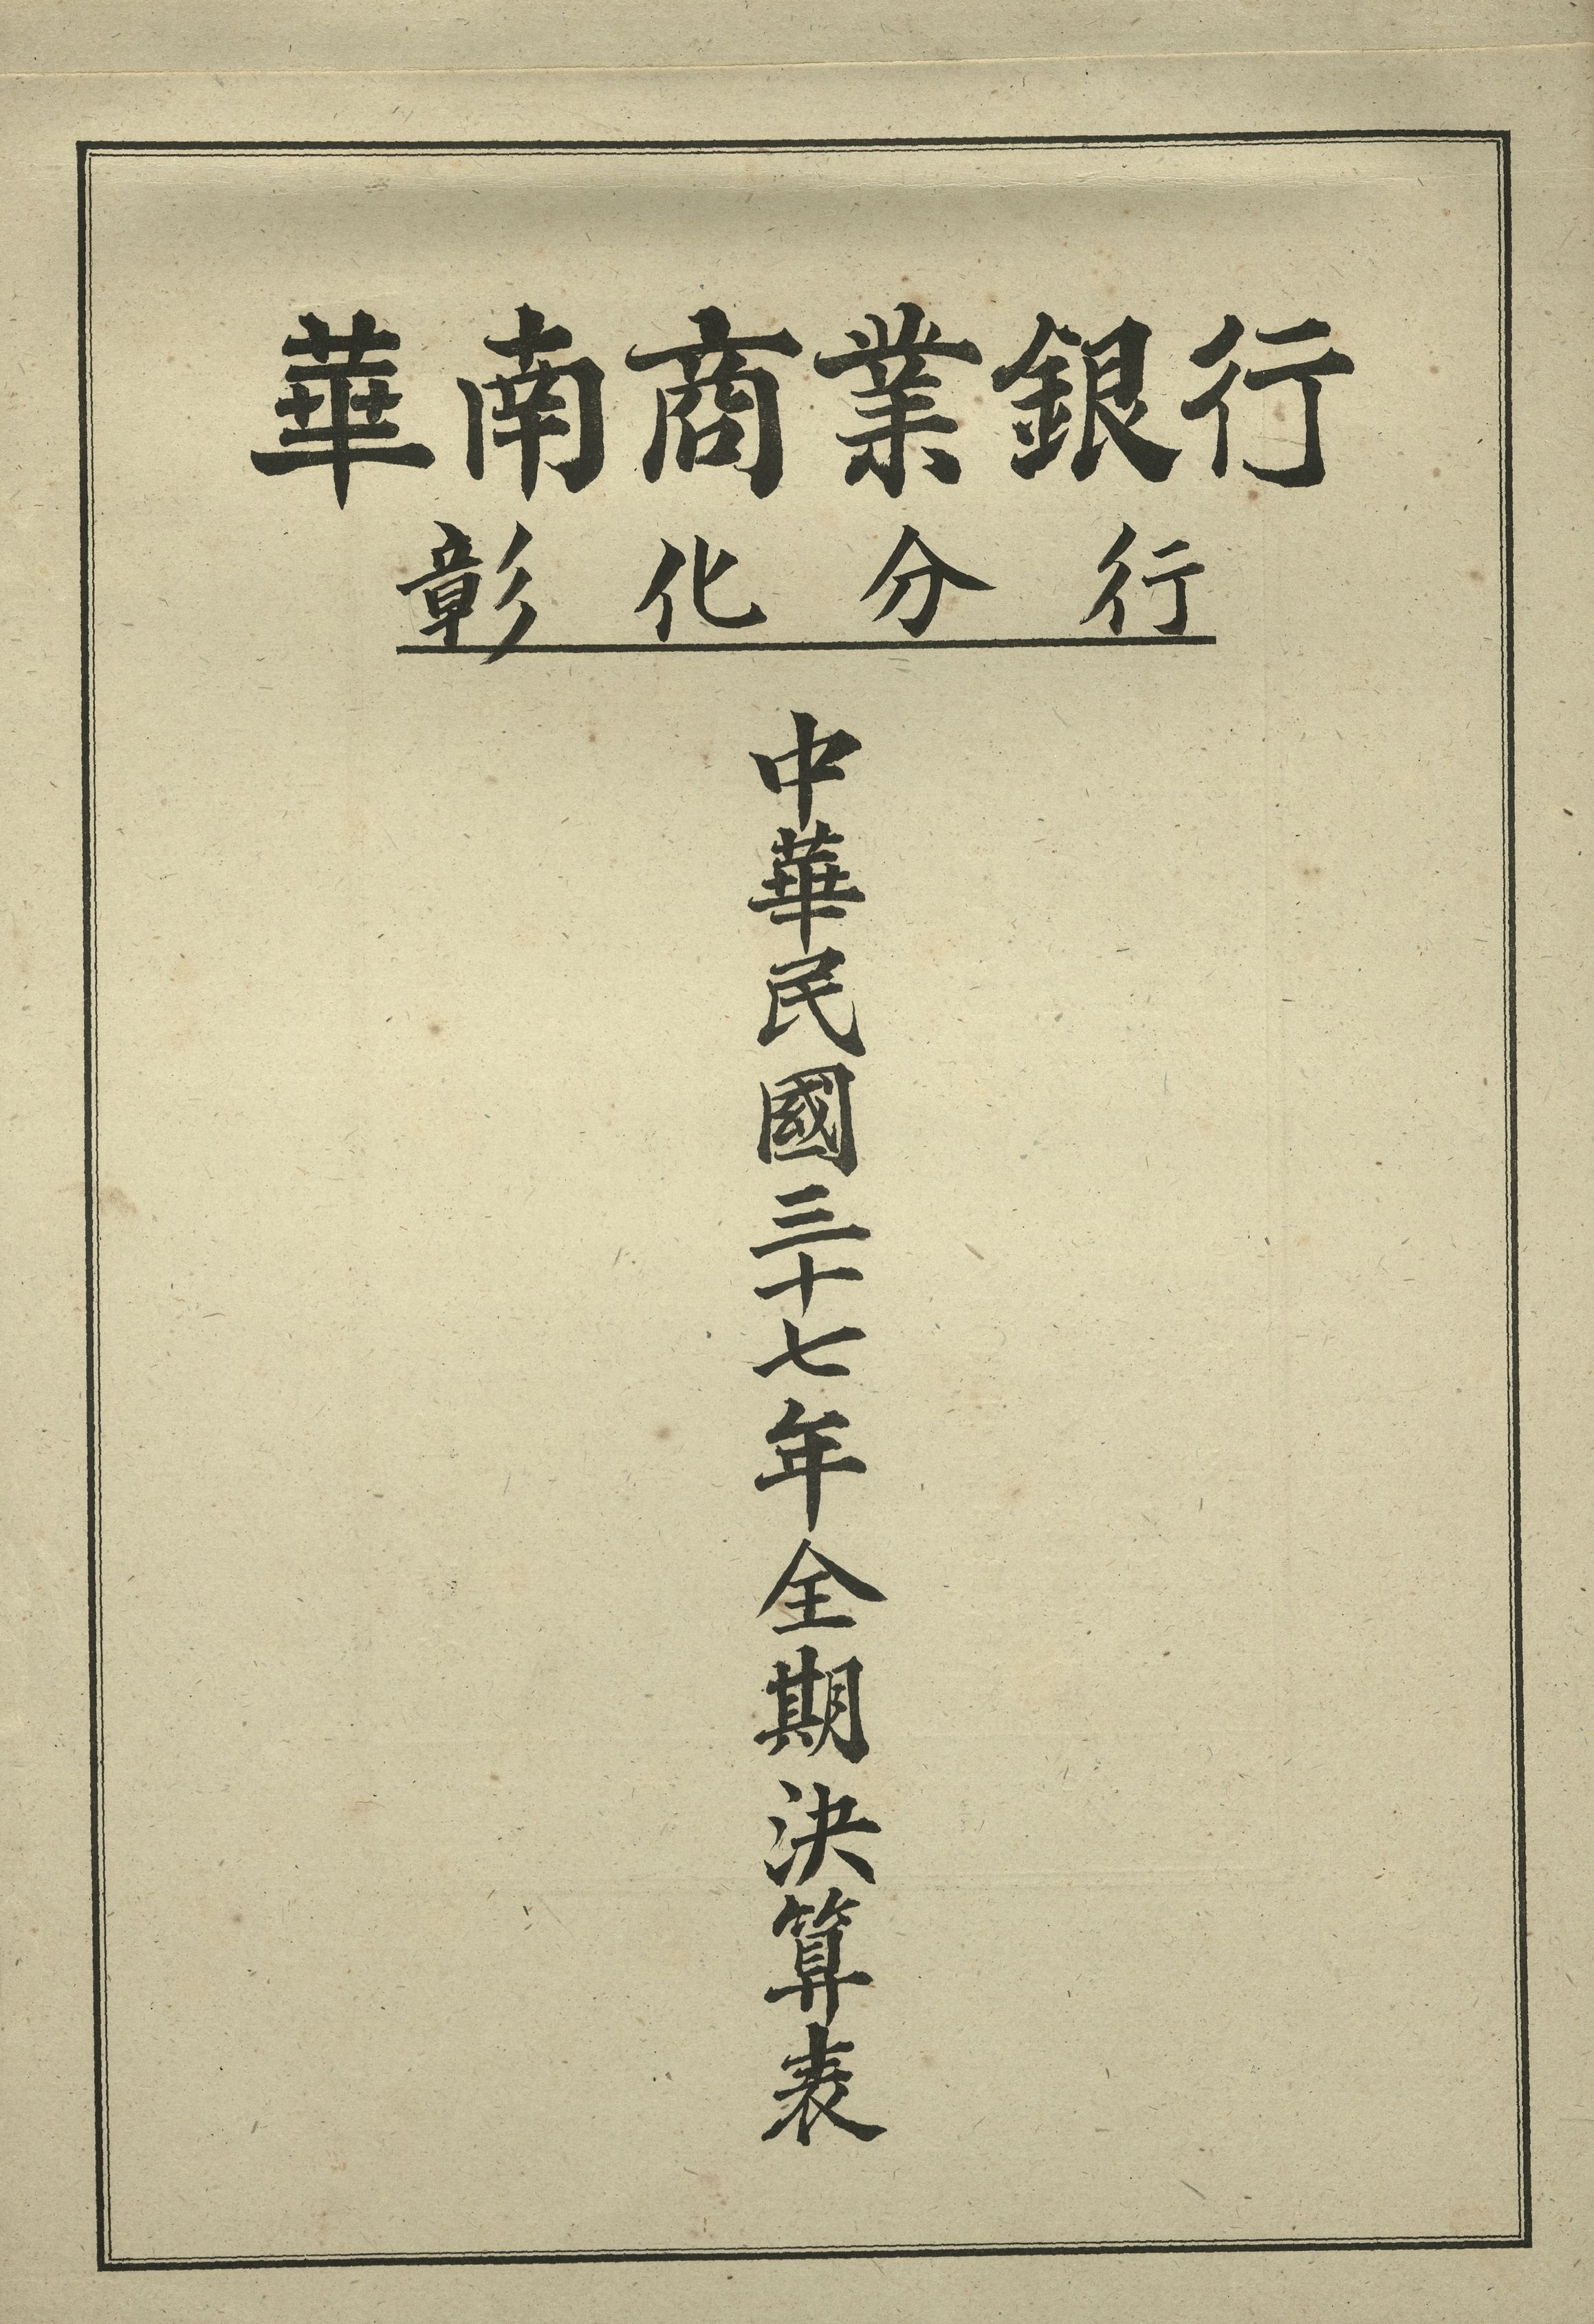 華南商業銀行
彰化分行
中華民國三十七年全期決算表